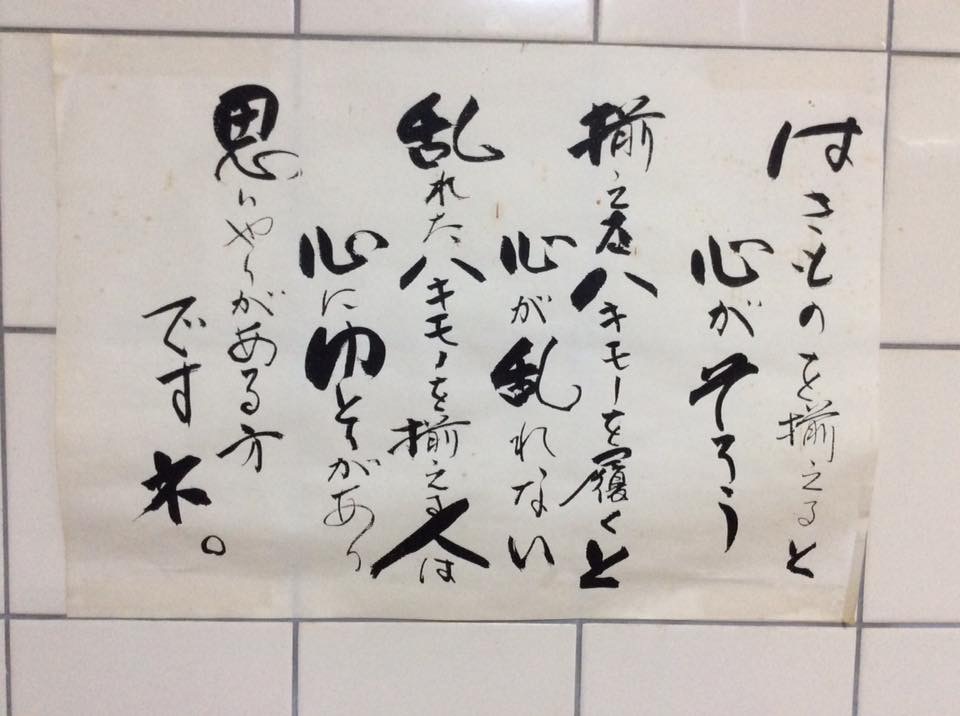 はきものを揃えると
心がそろう
揃えたハキモノを履くと
心が乱れない
乱れたハキモノを揃える人は
心にゆとりがあり
思いやりがある方
ですネ。